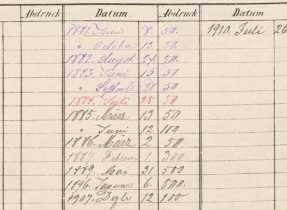 Abdruck Datum Abdruck Datum
1881. Juni 8 50. 1910. Juli 26
" October 12 50.
1882. August 24 50.
1883. Juni 15 50
" 50
1884. Juli 28 50
1885. März 13 50
" Juni 12 100
1886. März 2 50
1887. Februar 1 300
1889. Mai 31 500
1896. Januar 6. 500.
1907. Dzbr 12 100